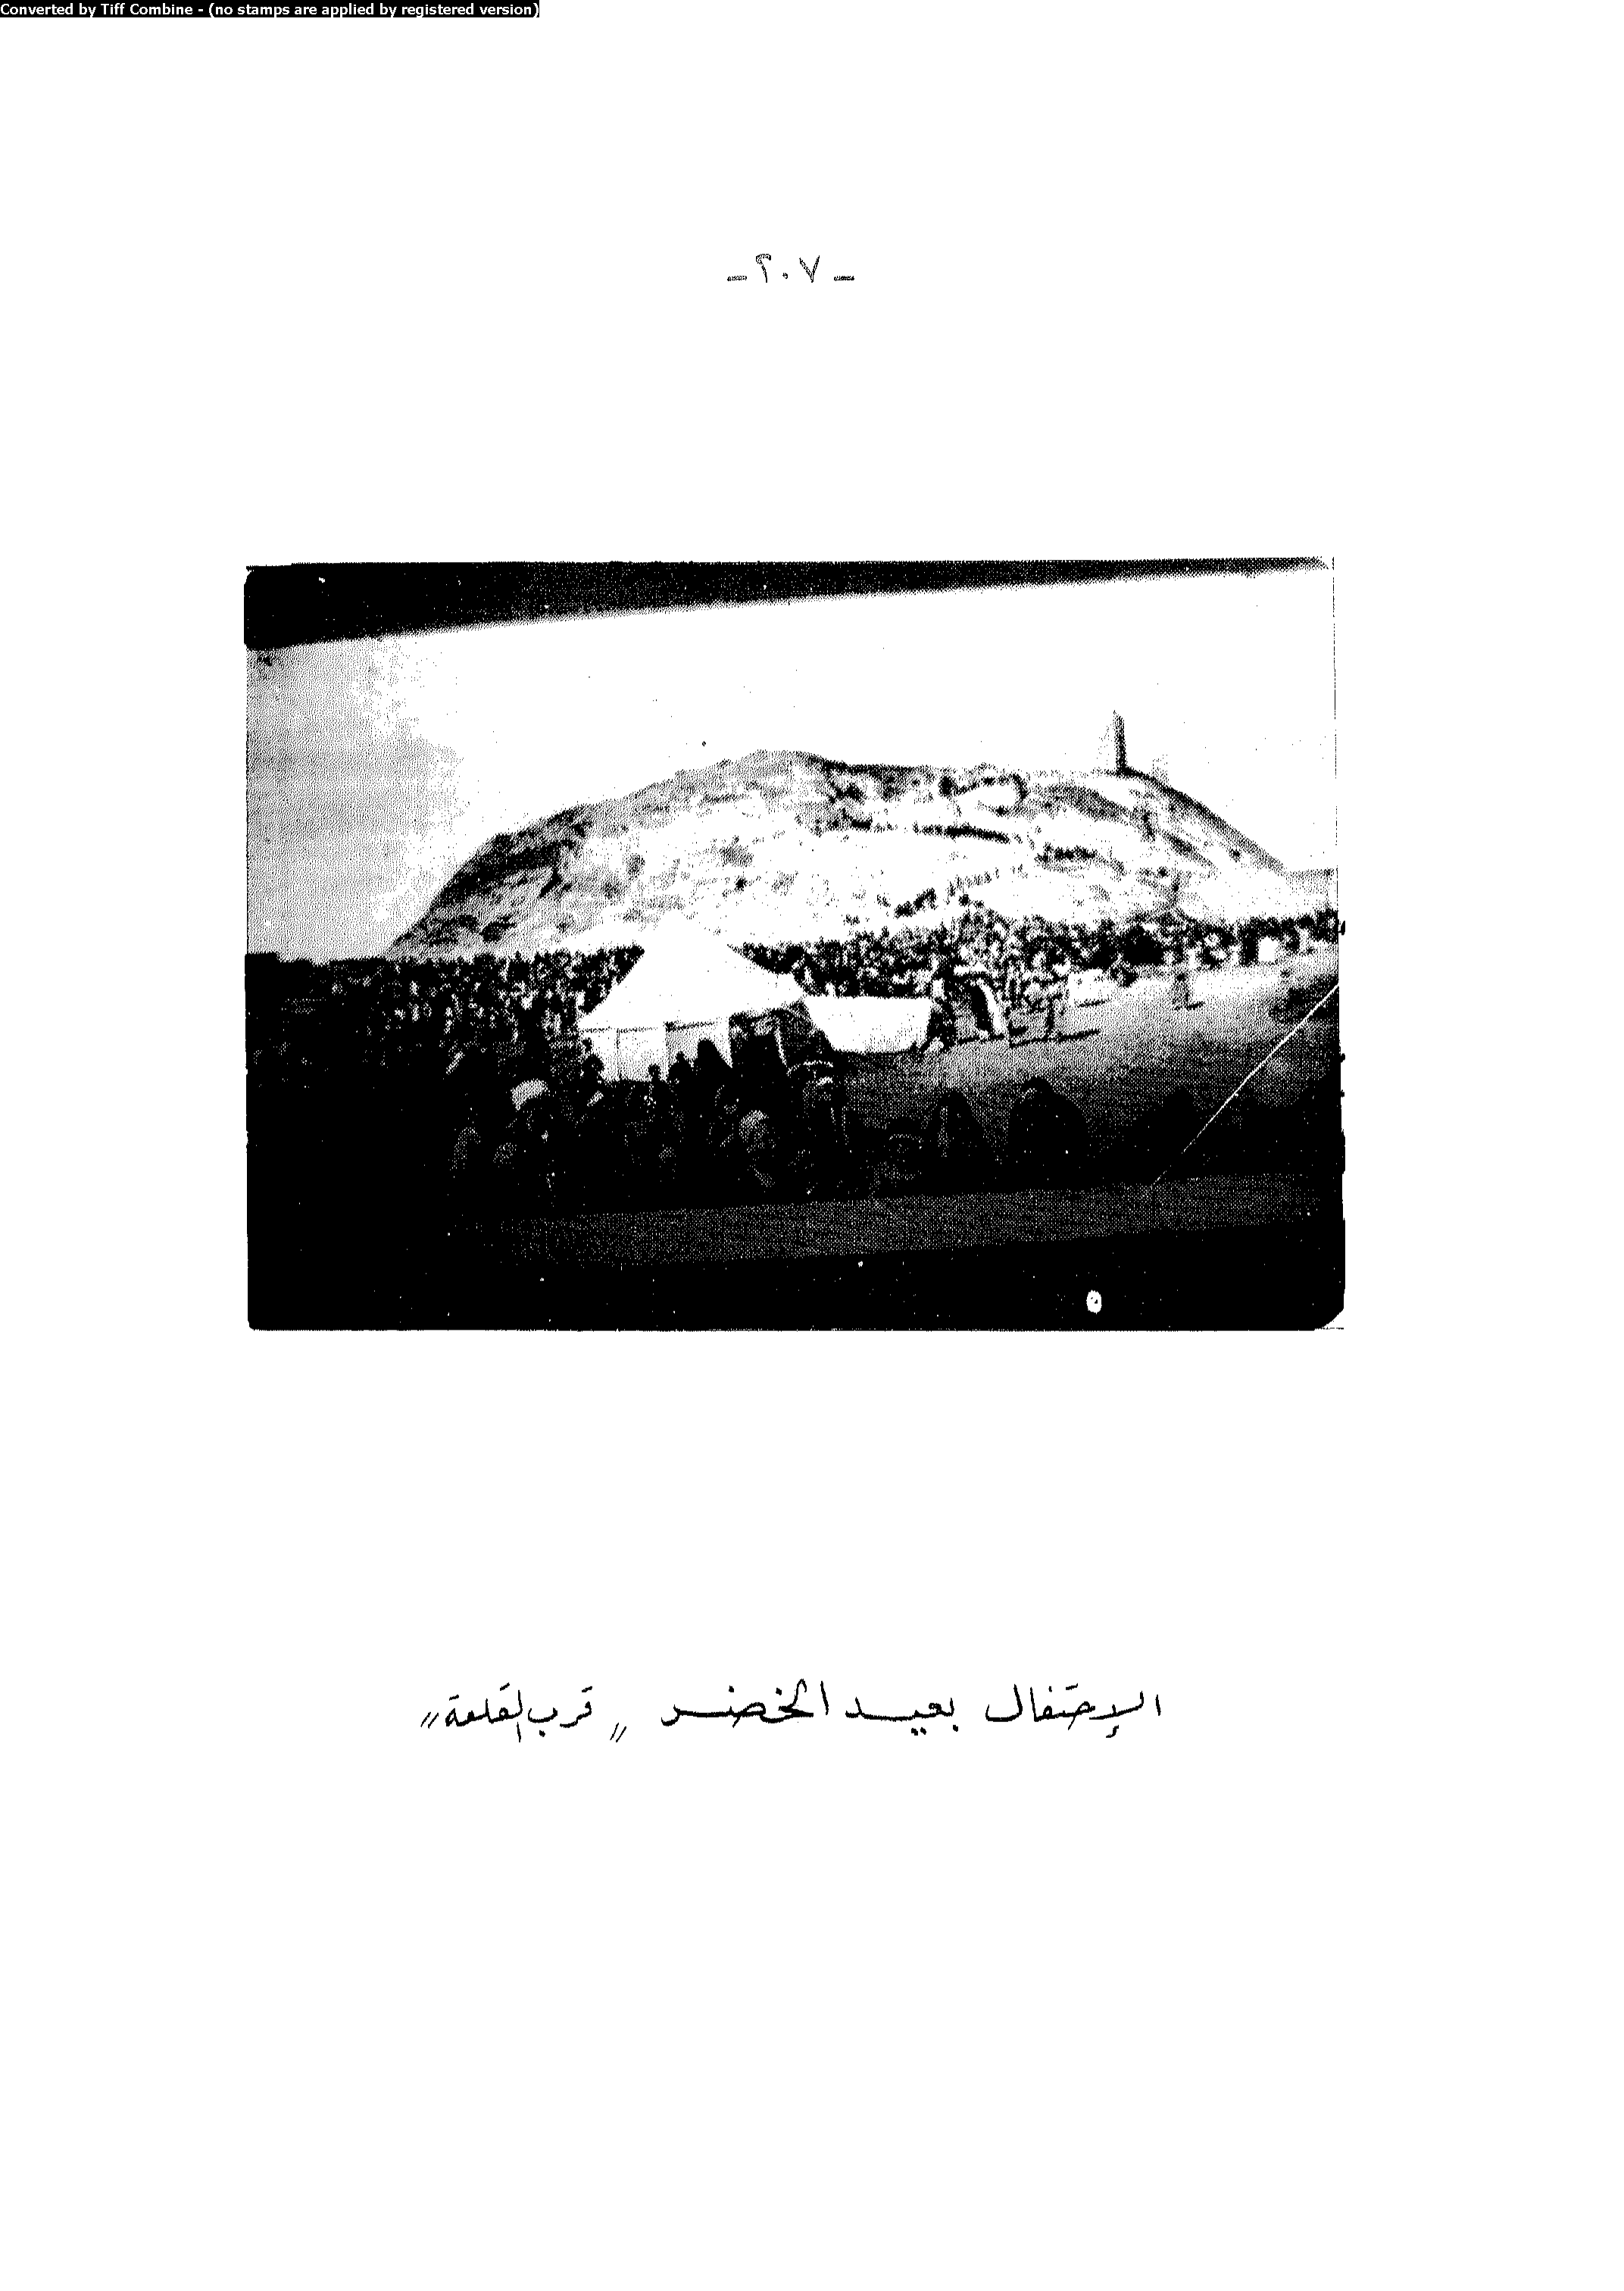 Converted by Tiff Combine - (no stamps are applied by registered version)
- ٢٠٧ -
الإحتفال بعيد الخضر "قرب القلعة"